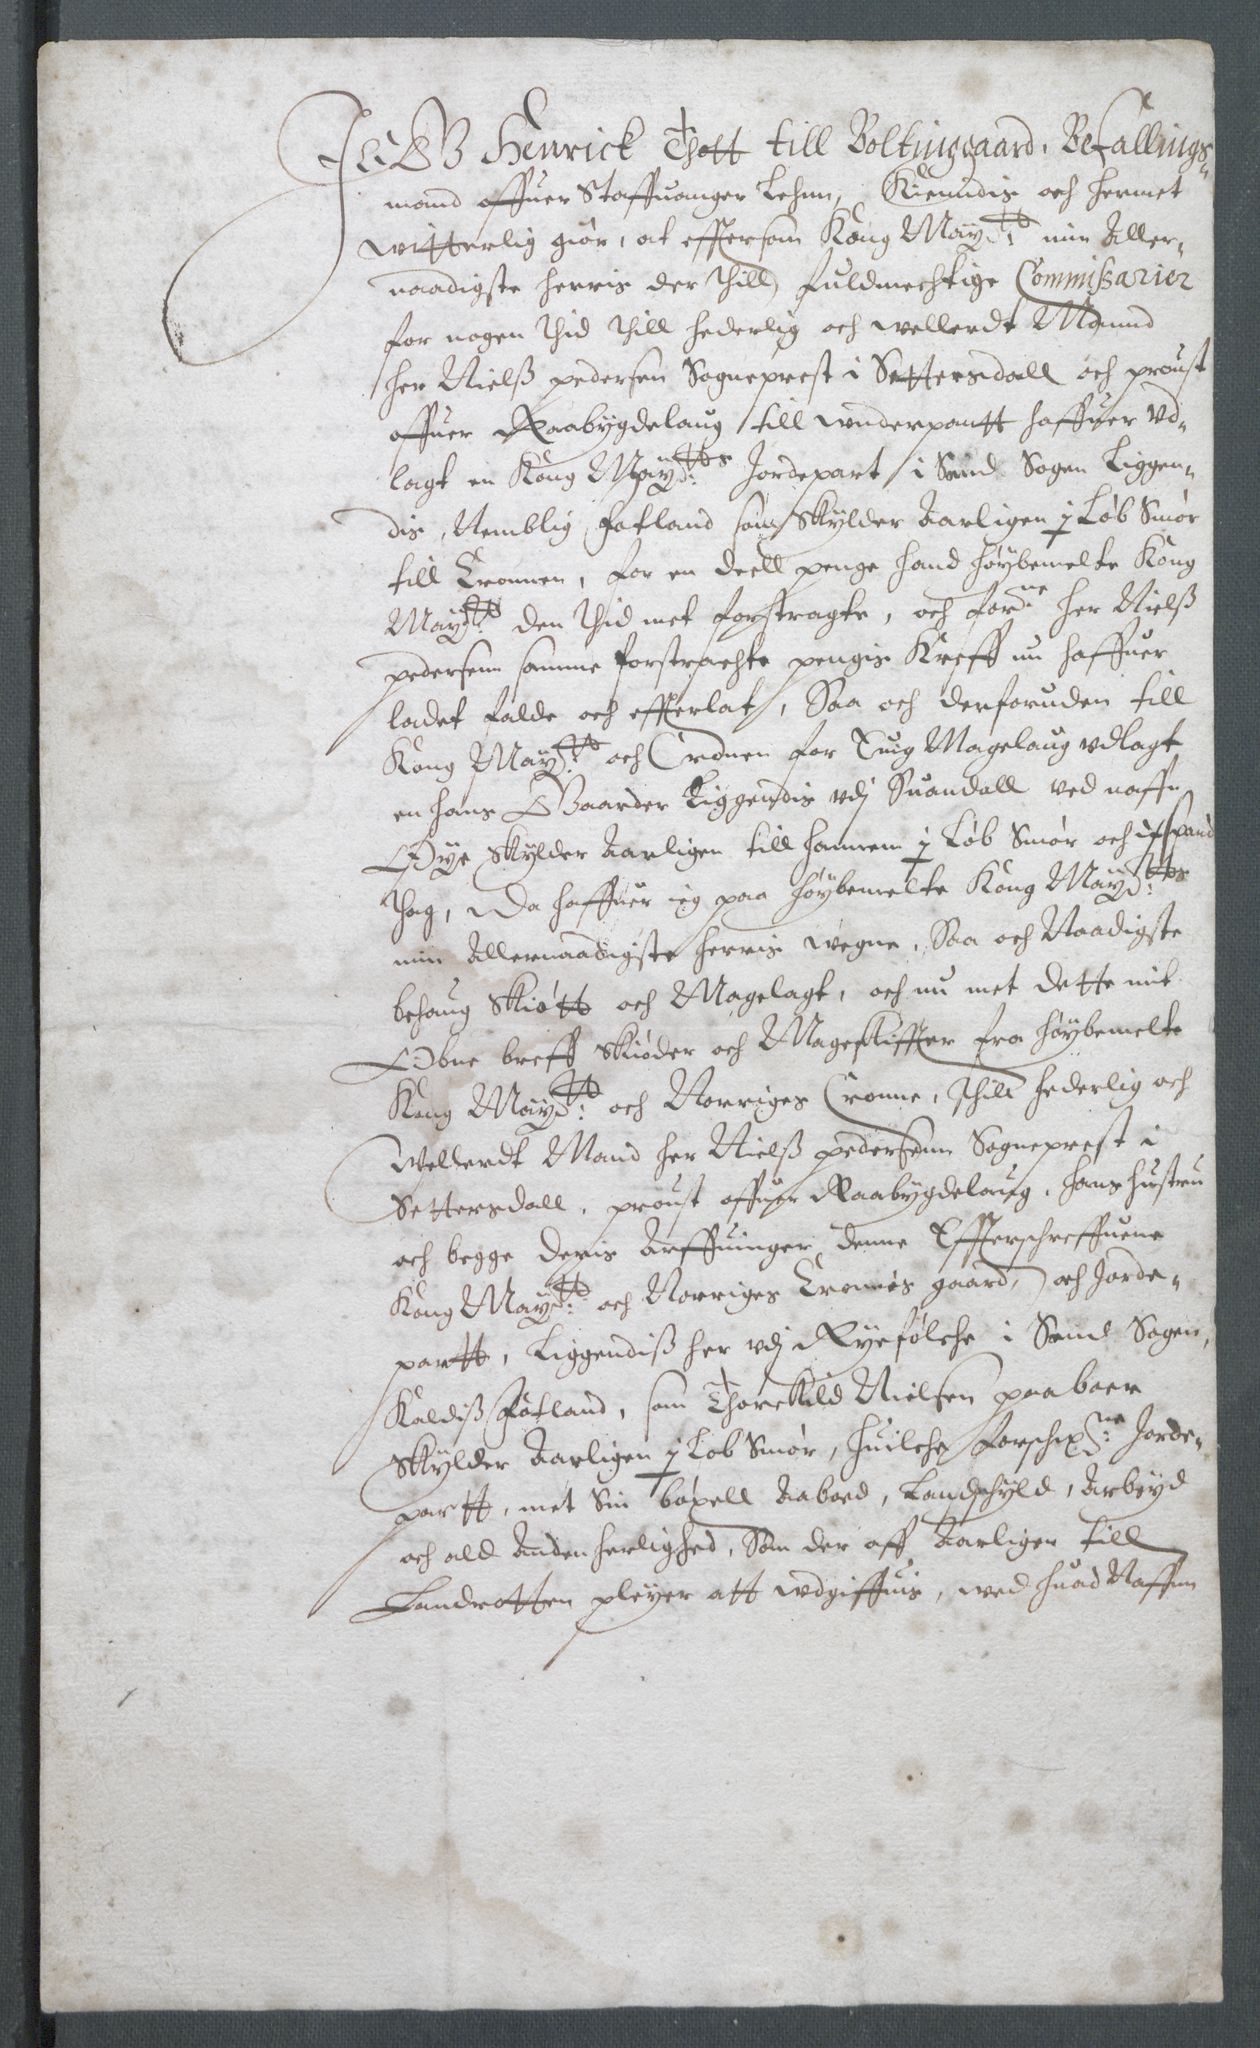 JEG Henrick Thott till Boltinggaard. Befallings¬
mand offuer Staffuanger Lehnn, Kiendis och hermet
witterlig giør, at efftersom Kong May:tt min Aller¬
naadigste herris der thill fuldmechtige Commissarier
for nogen thid thill hederlig och wellerdt Mannd
her Nielss pedersen Sogneprest i Settersdall och proust
offuer Raabygdelaug till wnderpantt haffuer vd¬
lagt en Kong May:ttes Jordepart i Sand Sogen Liggen¬
dis, Nemblig Fotland som Skylder Aarligen j Løb Smør
till Cronnen, for en deell penge hand høybemelte Kong
May:tt den thid met forstragte, och forne her Nielss
pedersenn samme forstrachte pengis Kreff nu haffuer
ladet falde och effterlat, Saa och derforuden till
Kong May:tt och Cronen for Magelaug vdlagt
en hans Gaarder Liggendis vdj Suandall ved naffn
Øye Skylder Aarligen till hannem j Løb Smør och spand
thag, Da haffuer ieg paa høybemelte Kong May:ttes
min Allernaadigste herris wegne, Saa och Naadigste
behaug Skiøtt och Magelagt, och nu met dette mit
Obne breff Skiøder och Mageskiffter fra høybemelte
Kong May:tt och Norriges Cronne, thill hederlig och
Wellerdt Mand her Nielss pedersenn Sogneprest i
Settersdall, proust offuer Raabygdelaug, hans hustru
och begge deris Arffuinger, denne Effterschreffuene
Kong May:tt och Norriges Cronnes gaard, och Jorde¬
partt, Liggendiss her vdj Ryefølche i Sand Sogen,
Kaldiss Fotland, som Thorckild Nielsen paaboer
Skylder Aarligen j Løb Smør, huilche forschr:ne Jorde¬
partt, met Sin bøxell Aaboed, Landschyld, Arbeyd
och ald Anden herlighed, Som der aff Aarligen till
Landrotten pleyer att wdgiffuis, wed huad Naffnn